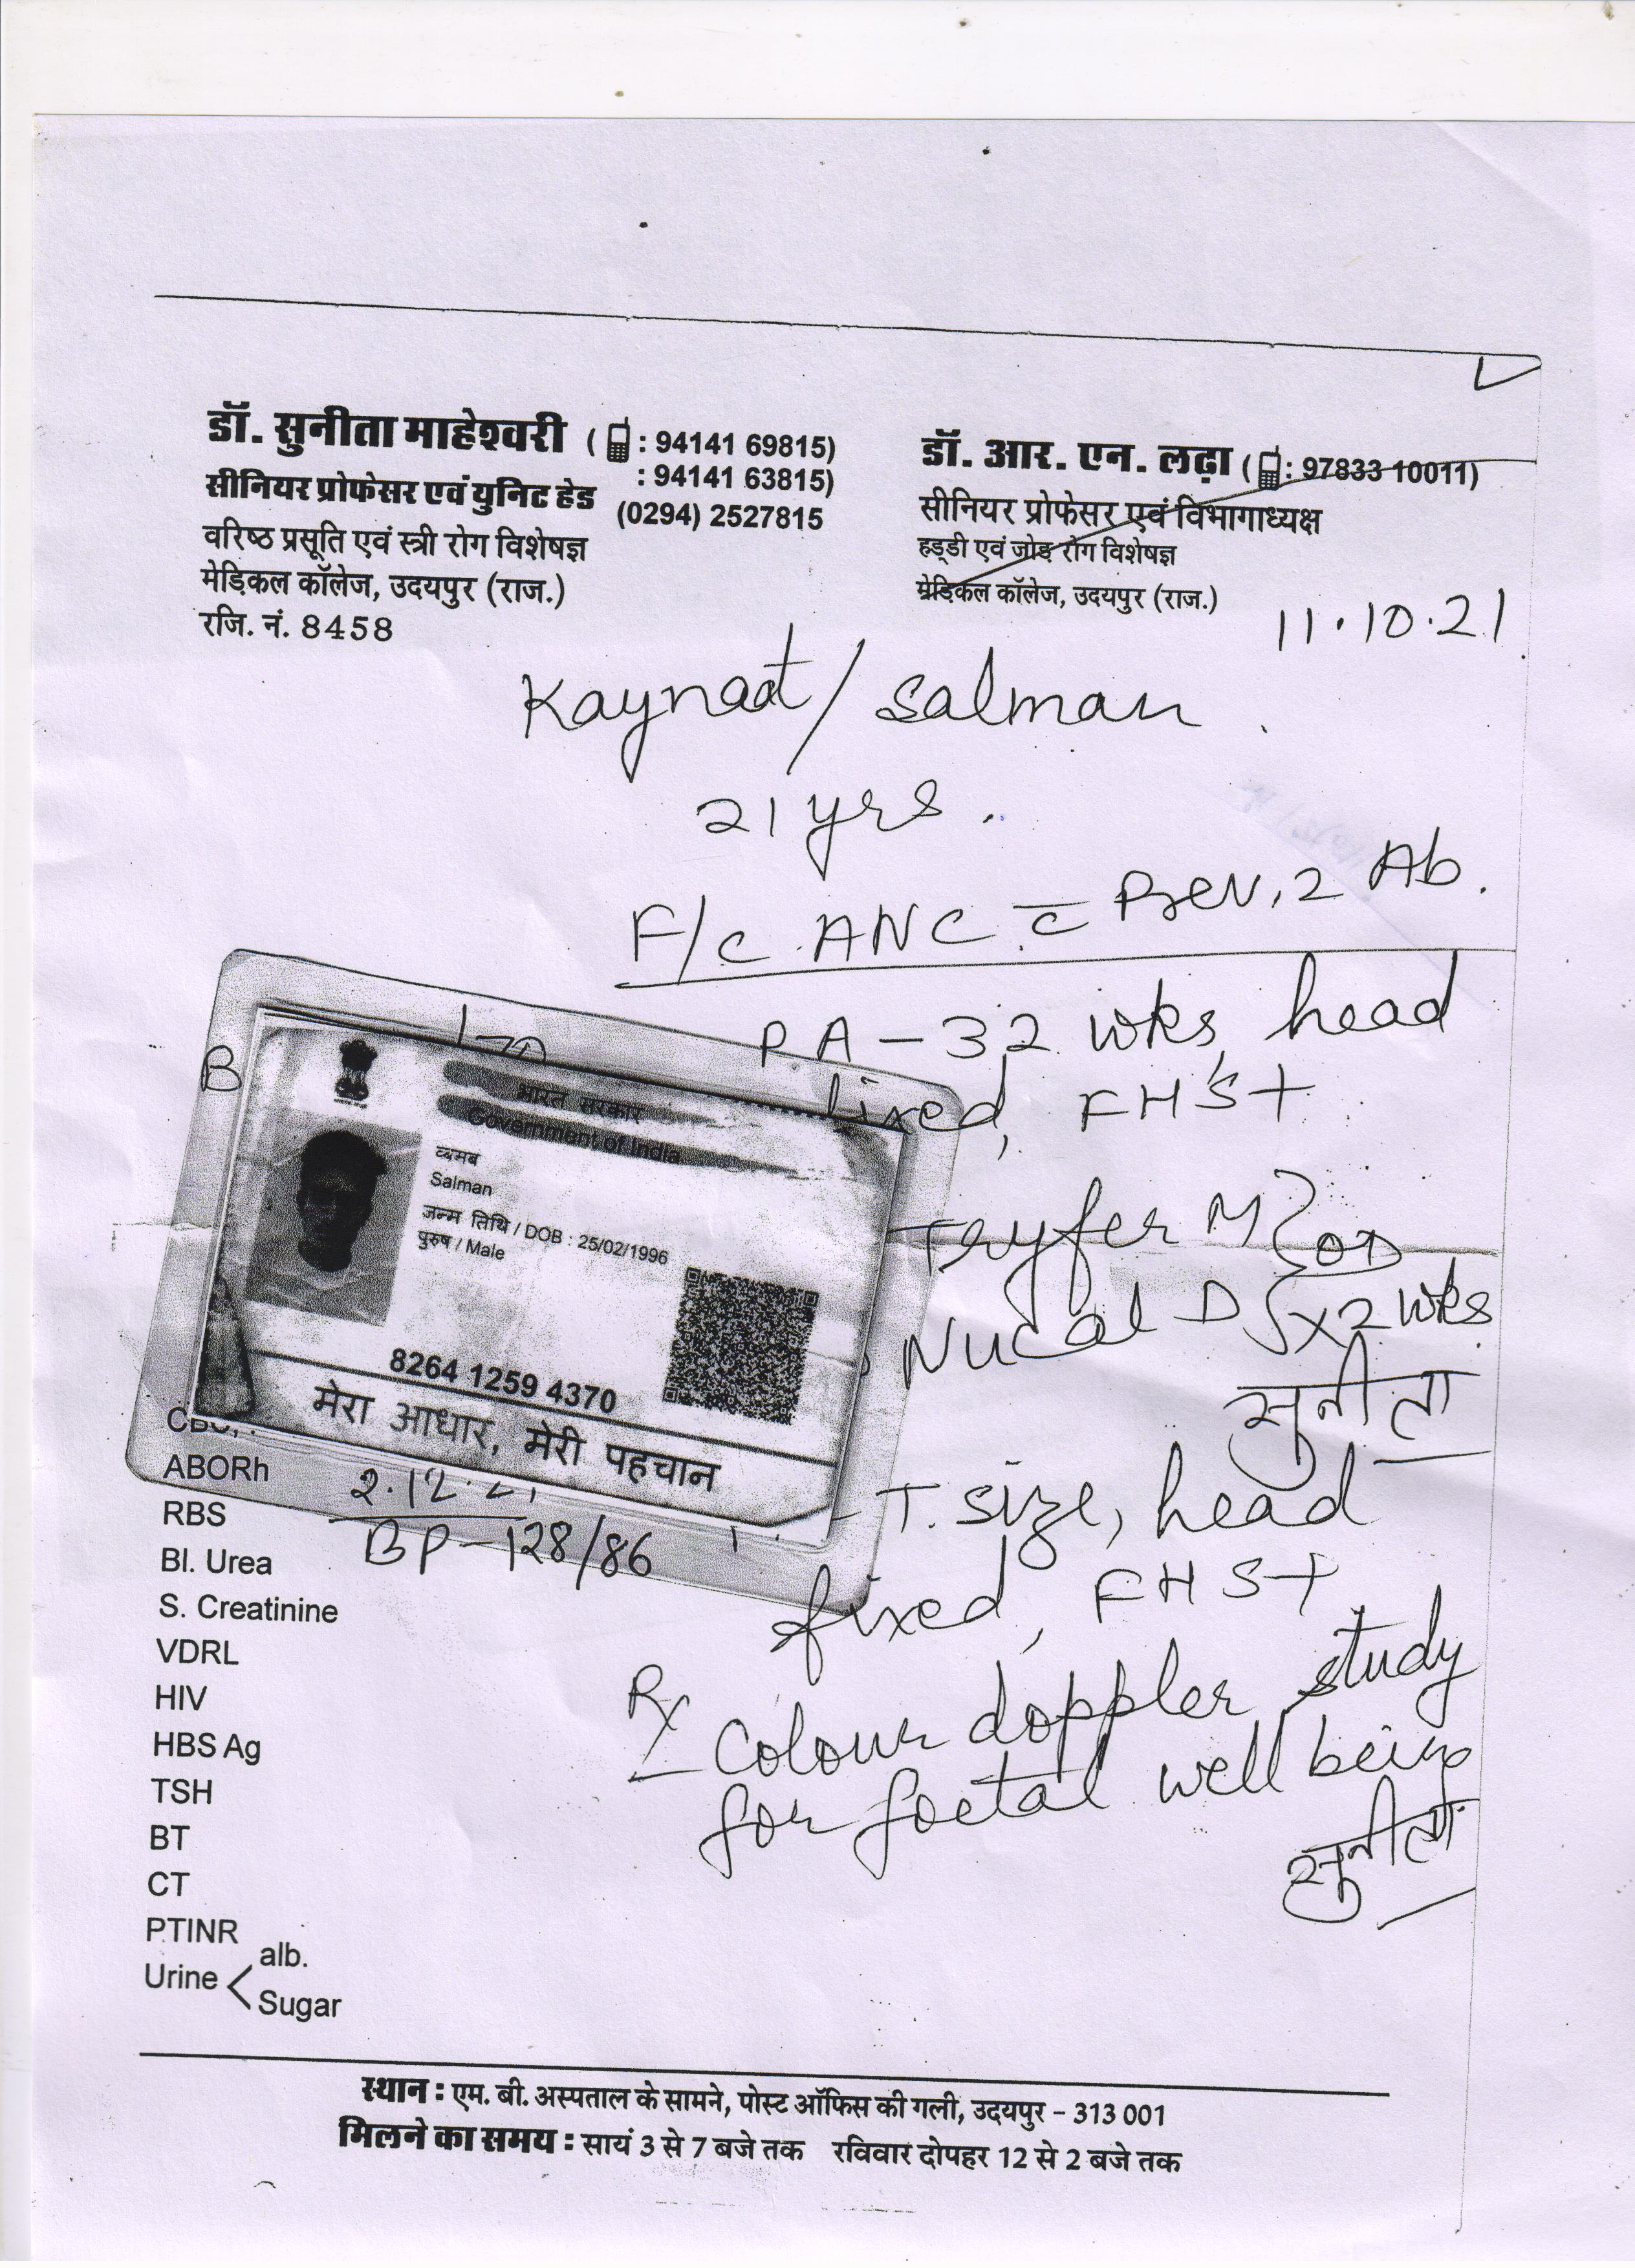 डॉ. सुनीता माहेश्वरी ( : 94141 69815)
: 94141 63815)
सीनियर प्रोफेसर एवं युनिट हेड (0294) 2527815
वरिष्ठ प्रसूति एवं स्त्री रोग विशेषज्ञ
मेडिकल कॉलेज, उदयपुर (राज.)
रजि. नं. 8458
डॉ. आर. एन. लढ़ा ( : 97833 10011)
सीनियर प्रोफेसर एवं विभागाध्यक्ष
हड्डी एवं जोड़ रोग विशेषज्ञ
मेडिकल कॉलेज, उदयपुर (राज.)
11.10.21
Kaynaat/Salman
21 yrs.
F/c ANC c̅ Prev. 2 Ab.
PA - 32 wks, head
fixed, FHS+
B
भारत सरकार
Government of India
Salman
जन्म तिथि / DOB : 25/02/1996
पुरुष / Male
8264 1259 4370
मेरा आधार, मेरी पहचान
Tryfer M } OD
Nucal D } x 2 wks
सुनीता
CBC,
ABORh
RBS
Bl. Urea
S. Creatinine
VDRL
HIV
HBS Ag
TSH
BT
CT
PTINR
Urine < alb.
Sugar
2.12.21
BP - 128/86
- T. size, head
fixed, FHS+
Rx
Colour doppler study
for foetal well being
सुनीता
स्थान : एम. बी. अस्पताल के सामने, पोस्ट ऑफिस की गली, उदयपुर - 313 001
मिलने का समय : सायं 3 से 7 बजे तक रविवार दोपहर 12 से 2 बजे तक